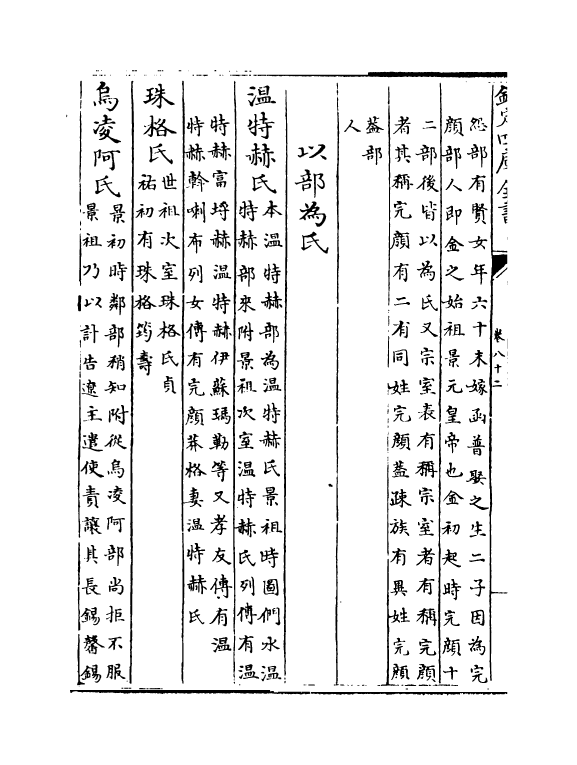 欽定四庫全書
卷八十二
怨部有賢女年六十未嫁函普娶之生二子因為完
顔部人即金之始祖景元皇帝也金初起時完顔十
二部後皆以為氏又宗室表有稱宗室者有稱完顔
者其稱完顔有二有同姓完顔蓋疎族有異姓完顔
蓋部
人
以部為氏
温特赫氏本温特赫部為温特赫氏景祖時圖們水温
特赫部來附景祖次室温特赫氏列傳有温
特赫富埒赫温特赫伊蘇瑪勒等又孝友傳有温
特赫斡喇布列女傳有完顔莽格妻温特赫氏
珠格氏世祖次室珠格氏貞
祐初有珠格筠壽
烏凌阿氏景初時鄰部稍知附從烏凌阿部尚拒不服
景祖乃以計告遼主遣使責讓其長錫馨錫